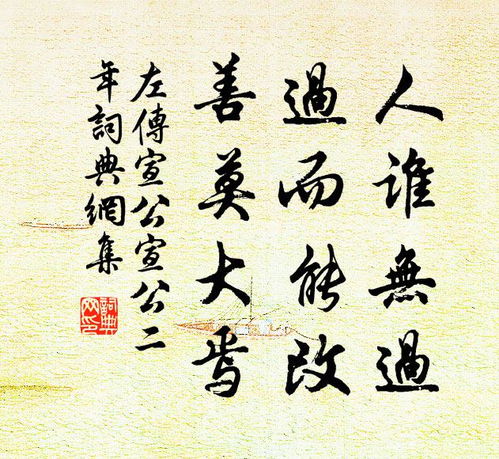 人誰無過
過而能改
善莫大焉
左傳宣公宣公二
年詞典網集
詞典網印